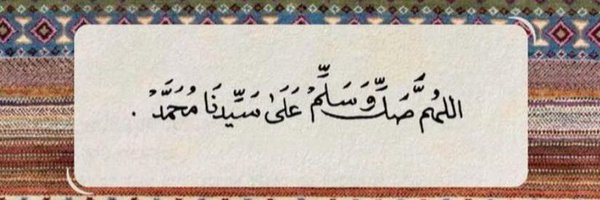 اللهُمَّ صَلِّ وَسَلِّمْ عَلَىٰ سَيِّدِنَا مُحَمَّدْ .